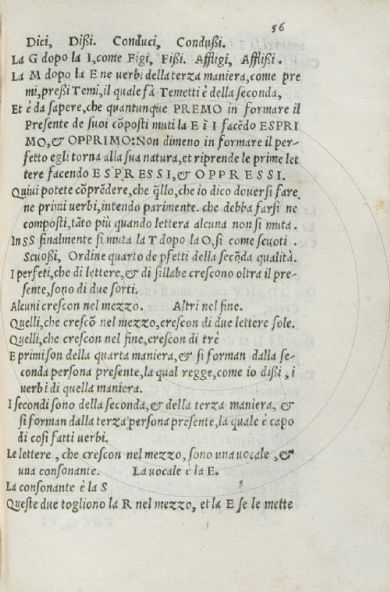 56
Dici, Dißi. Conduci, Condußi.
La G dopo la I, come Figi, Fißi. Affligi, Afflißi.
La M dopo la E ne uerbi della terza maniera, come pre
mi, preßi Temi, il quale fà Temetti è della seconda,
Et è da sapere, che quantunque PREMO in formare il
Presente de suoi cõposti muti la E ì I facẽdo ESPRI
MO, & OPPRIMO: Non dimeno in formare il per-
fetto egli torna alla sua natura, et riprende le prime let
tere facendo ESPRESSI, & OPPRESSI.
Quiui potete cõprẽdere, che q̃llo, che io dico douersi fare
ne primi uerbi, intendo parimente. che debba farsi ne
composti, tãto più quando lettera alcuna non si muta.
In SS finalmente si muta la T dopo la O, si come scuoti.
Scuoßi, Ordine quarto de pfetti della secõda qualità.
I perfeti, che di lettere, & di sillabe crescono oltra il pre-
sente, sono di due sorti.
Alcuni crescon nel mezzo. Altri nel fine.
Quelli, che crescõ nel mezzo, crescon di due lettere sole.
Quelli, che crescon nel fine, crescon di trè
E primi son della quarta maniera, & si forman dalla se-
conda persona presente, la qual regge, come io dißi, i
uerbi di quella maniera.
I secondi sono della seconda, & della terza maniera, &
si forman dalla terza persona presente, la quale è capo
di cosi fatti uerbi.
Le lettere, che crescon nel mezzo, sono una uocale, &
una consonante. La uocale è la E.
La consonante è la S
Queste due togliono la R nel mezzo, et la E se le mette